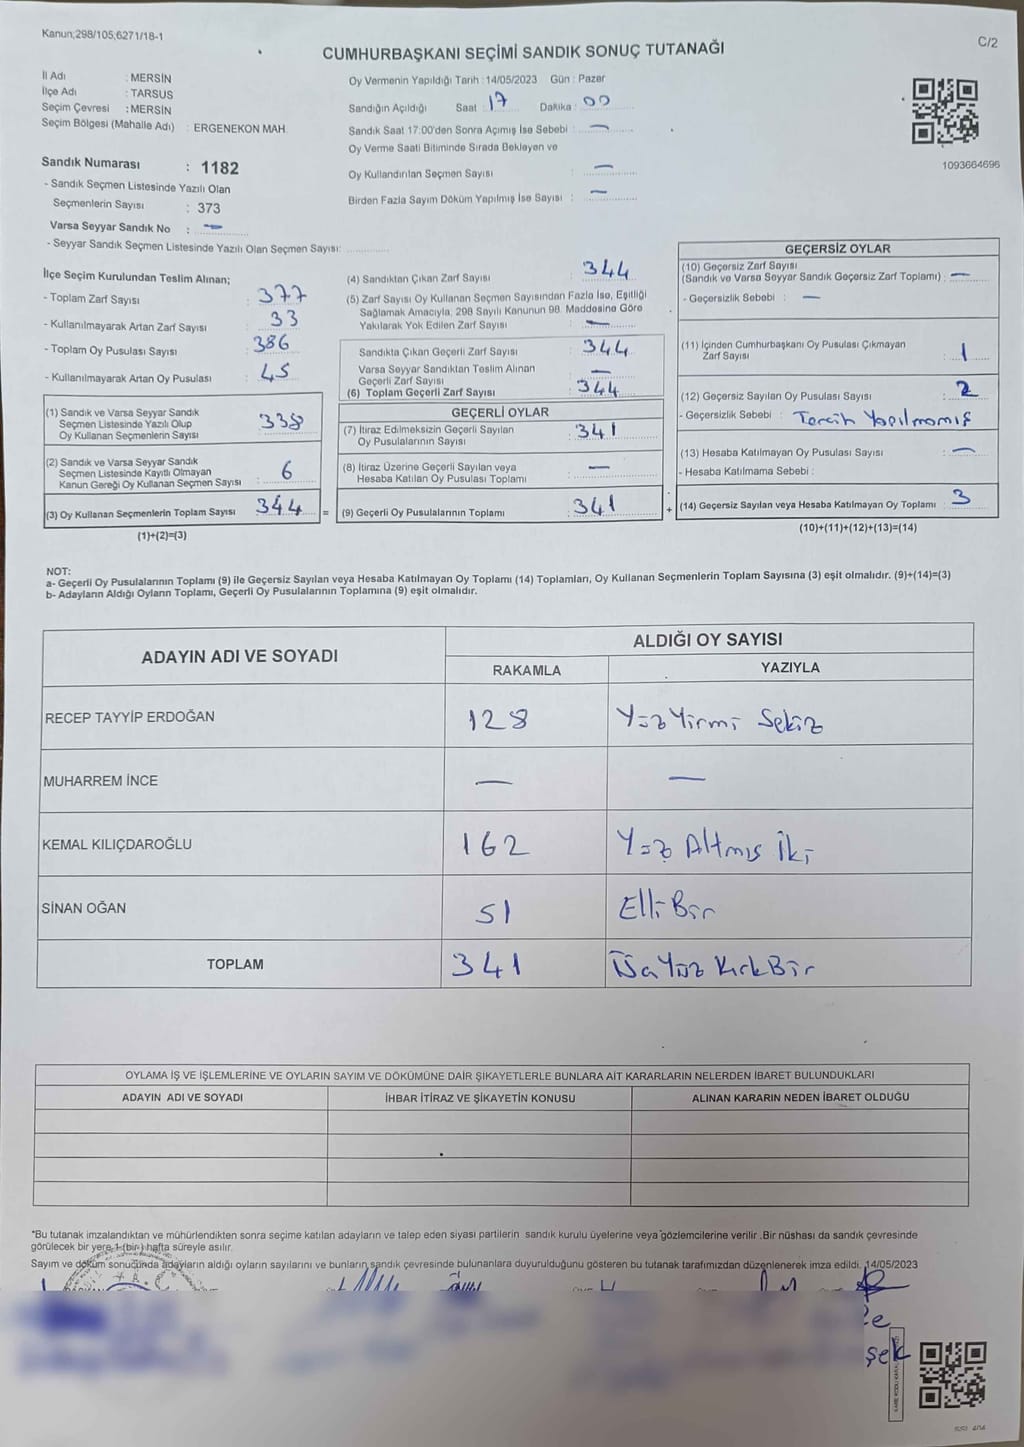 Kanun;298/105,6271/18-1
C/2
CUMHURBAŞKANI SEÇİMİ SANDIK SONUÇ TUTANAĞI
İl Adı : MERSİN
İlçe Adı : TARSUS
Seçim Çevresi : MERSİN
Seçim Bölgesi (Mahalle Adı) : ERGENEKON MAH.
Sandık Numarası : 1182
- Sandık Seçmen Listesinde Yazılı Olan
Seçmenlerin Sayısı : 373
Varsa Seyyar Sandık No : —
- Seyyar Sandık Seçmen Listesinde Yazılı Olan Seçmen Sayısı: ..............
Oy Vermenin Yapıldığı Tarih : 14/05/2023 Gün : Pazar
Sandığın Açıldığı Saat : 17 Dakika : 00
Sandık Saat 17:00'den Sonra Açılmış İse Sebebi : —
Oy Verme Saati Bitiminde Sırada Bekleyen ve
Oy Kullandırılan Seçmen Sayısı : —
Birden Fazla Sayım Döküm Yapılmış İse Sayısı : —
1093664696
İlçe Seçim Kurulundan Teslim Alınan;
- Toplam Zarf Sayısı : 377
- Kullanılmayarak Artan Zarf Sayısı : 33
- Toplam Oy Pusulası Sayısı : 386
- Kullanılmayarak Artan Oy Pusulası : 45
(1) Sandık ve Varsa Seyyar Sandık
Seçmen Listesinde Yazılı Olup
Oy Kullanan Seçmenlerin Sayısı : 338
(2) Sandık ve Varsa Seyyar Sandık
Seçmen Listesinde Kayıtlı Olmayan
Kanun Gereği Oy Kullanan Seçmen Sayısı : 6
(3) Oy Kullanan Seçmenlerin Toplam Sayısı : 344 =
(1)+(2)=(3)
(4) Sandıktan Çıkan Zarf Sayısı : 344
(5) Zarf Sayısı Oy Kullanan Seçmen Sayısından Fazla İse, Eşitliği
Sağlamak Amacıyla, 298 Sayılı Kanunun 98. Maddesine Göre
Yakılarak Yok Edilen Zarf Sayısı : —
Sandıkta Çıkan Geçerli Zarf Sayısı : 344
Varsa Seyyar Sandıktan Teslim Alınan
Geçerli Zarf Sayısı : —
(6) Toplam Geçerli Zarf Sayısı : 344
GEÇERLİ OYLAR
(7) İtiraz Edilmeksizin Geçerli Sayılan
Oy Pusulalarının Sayısı : 341
(8) İtiraz Üzerine Geçerli Sayılan veya
Hesaba Katılan Oy Pusulası Toplamı : —
(9) Geçerli Oy Pusulalarının Toplamı : 341 +
GEÇERSİZ OYLAR
(10) Geçersiz Zarf Sayısı
(Sandık ve Varsa Seyyar Sandık Geçersiz Zarf Toplamı) : —
- Geçersizlik Sebebi : —
(11) İçinden Cumhurbaşkanı Oy Pusulası Çıkmayan
Zarf Sayısı : 1
(12) Geçersiz Sayılan Oy Pusulası Sayısı : 2
- Geçersizlik Sebebi : Tercih Yapılmamış
(13) Hesaba Katılmayan Oy Pusulası Sayısı : —
- Hesaba Katılmama Sebebi :
(14) Geçersiz Sayılan veya Hesaba Katılmayan Oy Toplamı : 3
(10)+(11)+(12)+(13)=(14)
NOT:
a- Geçerli Oy Pusulalarının Toplamı (9) ile Geçersiz Sayılan veya Hesaba Katılmayan Oy Toplamı (14) Toplamları, Oy Kullanan Seçmenlerin Toplam Sayısına (3) eşit olmalıdır. (9)+(14)=(3)
b- Adayların Aldığı Oyların Toplamı, Geçerli Oy Pusulalarının Toplamına (9) eşit olmalıdır.
ADAYIN ADI VE SOYADI
ALDIĞI OY SAYISI
RAKAMLA YAZIYLA
RECEP TAYYİP ERDOĞAN 128 Yüz Yirmi Sekiz
MUHARREM İNCE — —
KEMAL KILIÇDAROĞLU 162 Yüz Altmış İki
SİNAN OĞAN 51 Elli Bir
TOPLAM 341 Üç Yüz Kırk Bir
OYLAMA İŞ VE İŞLEMLERİNE VE OYLARIN SAYIM VE DÖKÜMÜNE DAİR ŞİKAYETLERLE BUNLARA AİT KARARLARIN NELERDEN İBARET BULUNDUKLARI
ADAYIN ADI VE SOYADI İHBAR İTİRAZ VE ŞİKAYETİN KONUSU ALINAN KARARIN NEDEN İBARET OLDUĞU
*Bu tutanak imzalandıktan ve mühürlendikten sonra seçime katılan adayların ve talep eden siyasi partilerin sandık kurulu üyelerine veya gözlemcilerine verilir .Bir nüshası da sandık çevresinde
görülecek bir yere 1 (bir) hafta süreyle asılır.
Sayım ve döküm sonucunda adayların aldığı oyların sayılarını ve bunların sandık çevresinde bulunanlara duyurulduğunu gösteren bu tutanak tarafımızdan düzenlenerek imza edildi. 14/05/2023
şek